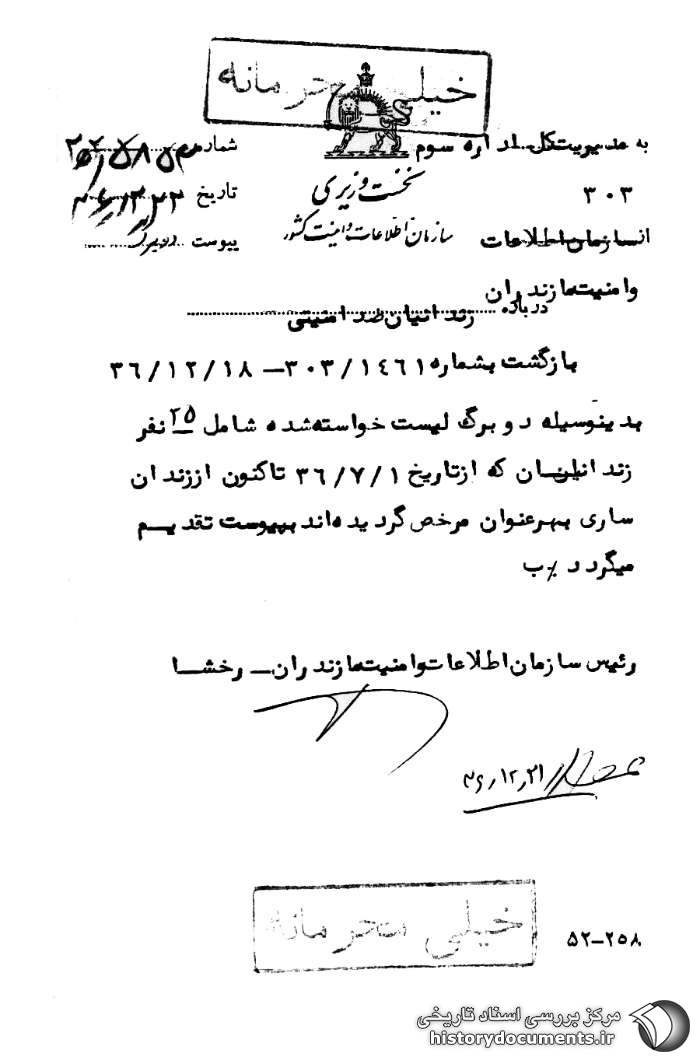 خیلی محرمانه
به مدیریت کل اداره سوم
شماره
۳۰۳
نخست وزیری
تاریخ
از سازمان اطلاعات
سازمان اطلاعات و امنیت کشور
پیوست دارد
وامنیت مازندران
درباره زندانیان ضد امنیتی
بازگشت بشماره ۳۰۳/۱٤٦۱ – ۳٦/۱۲/۱۸
بدینوسیله دو برگ لیست خواسته شده شامل ۲۵ نفر
زندانیان که از تاریخ ۳٦/۷/۱ تاکنون از زندان
ساری بهر عنوان مرخص گردیده‌اند بپیوست تقدیم
میگردد ٪ب
رئیس سازمان اطلاعات وامنیت مازندران – رخشا
۳۶٫۱۲٫۲۱
خیلی محرمانه
۵۲–۲۵۸
مرکز بررسی اسناد تاریخی
historydocuments.ir